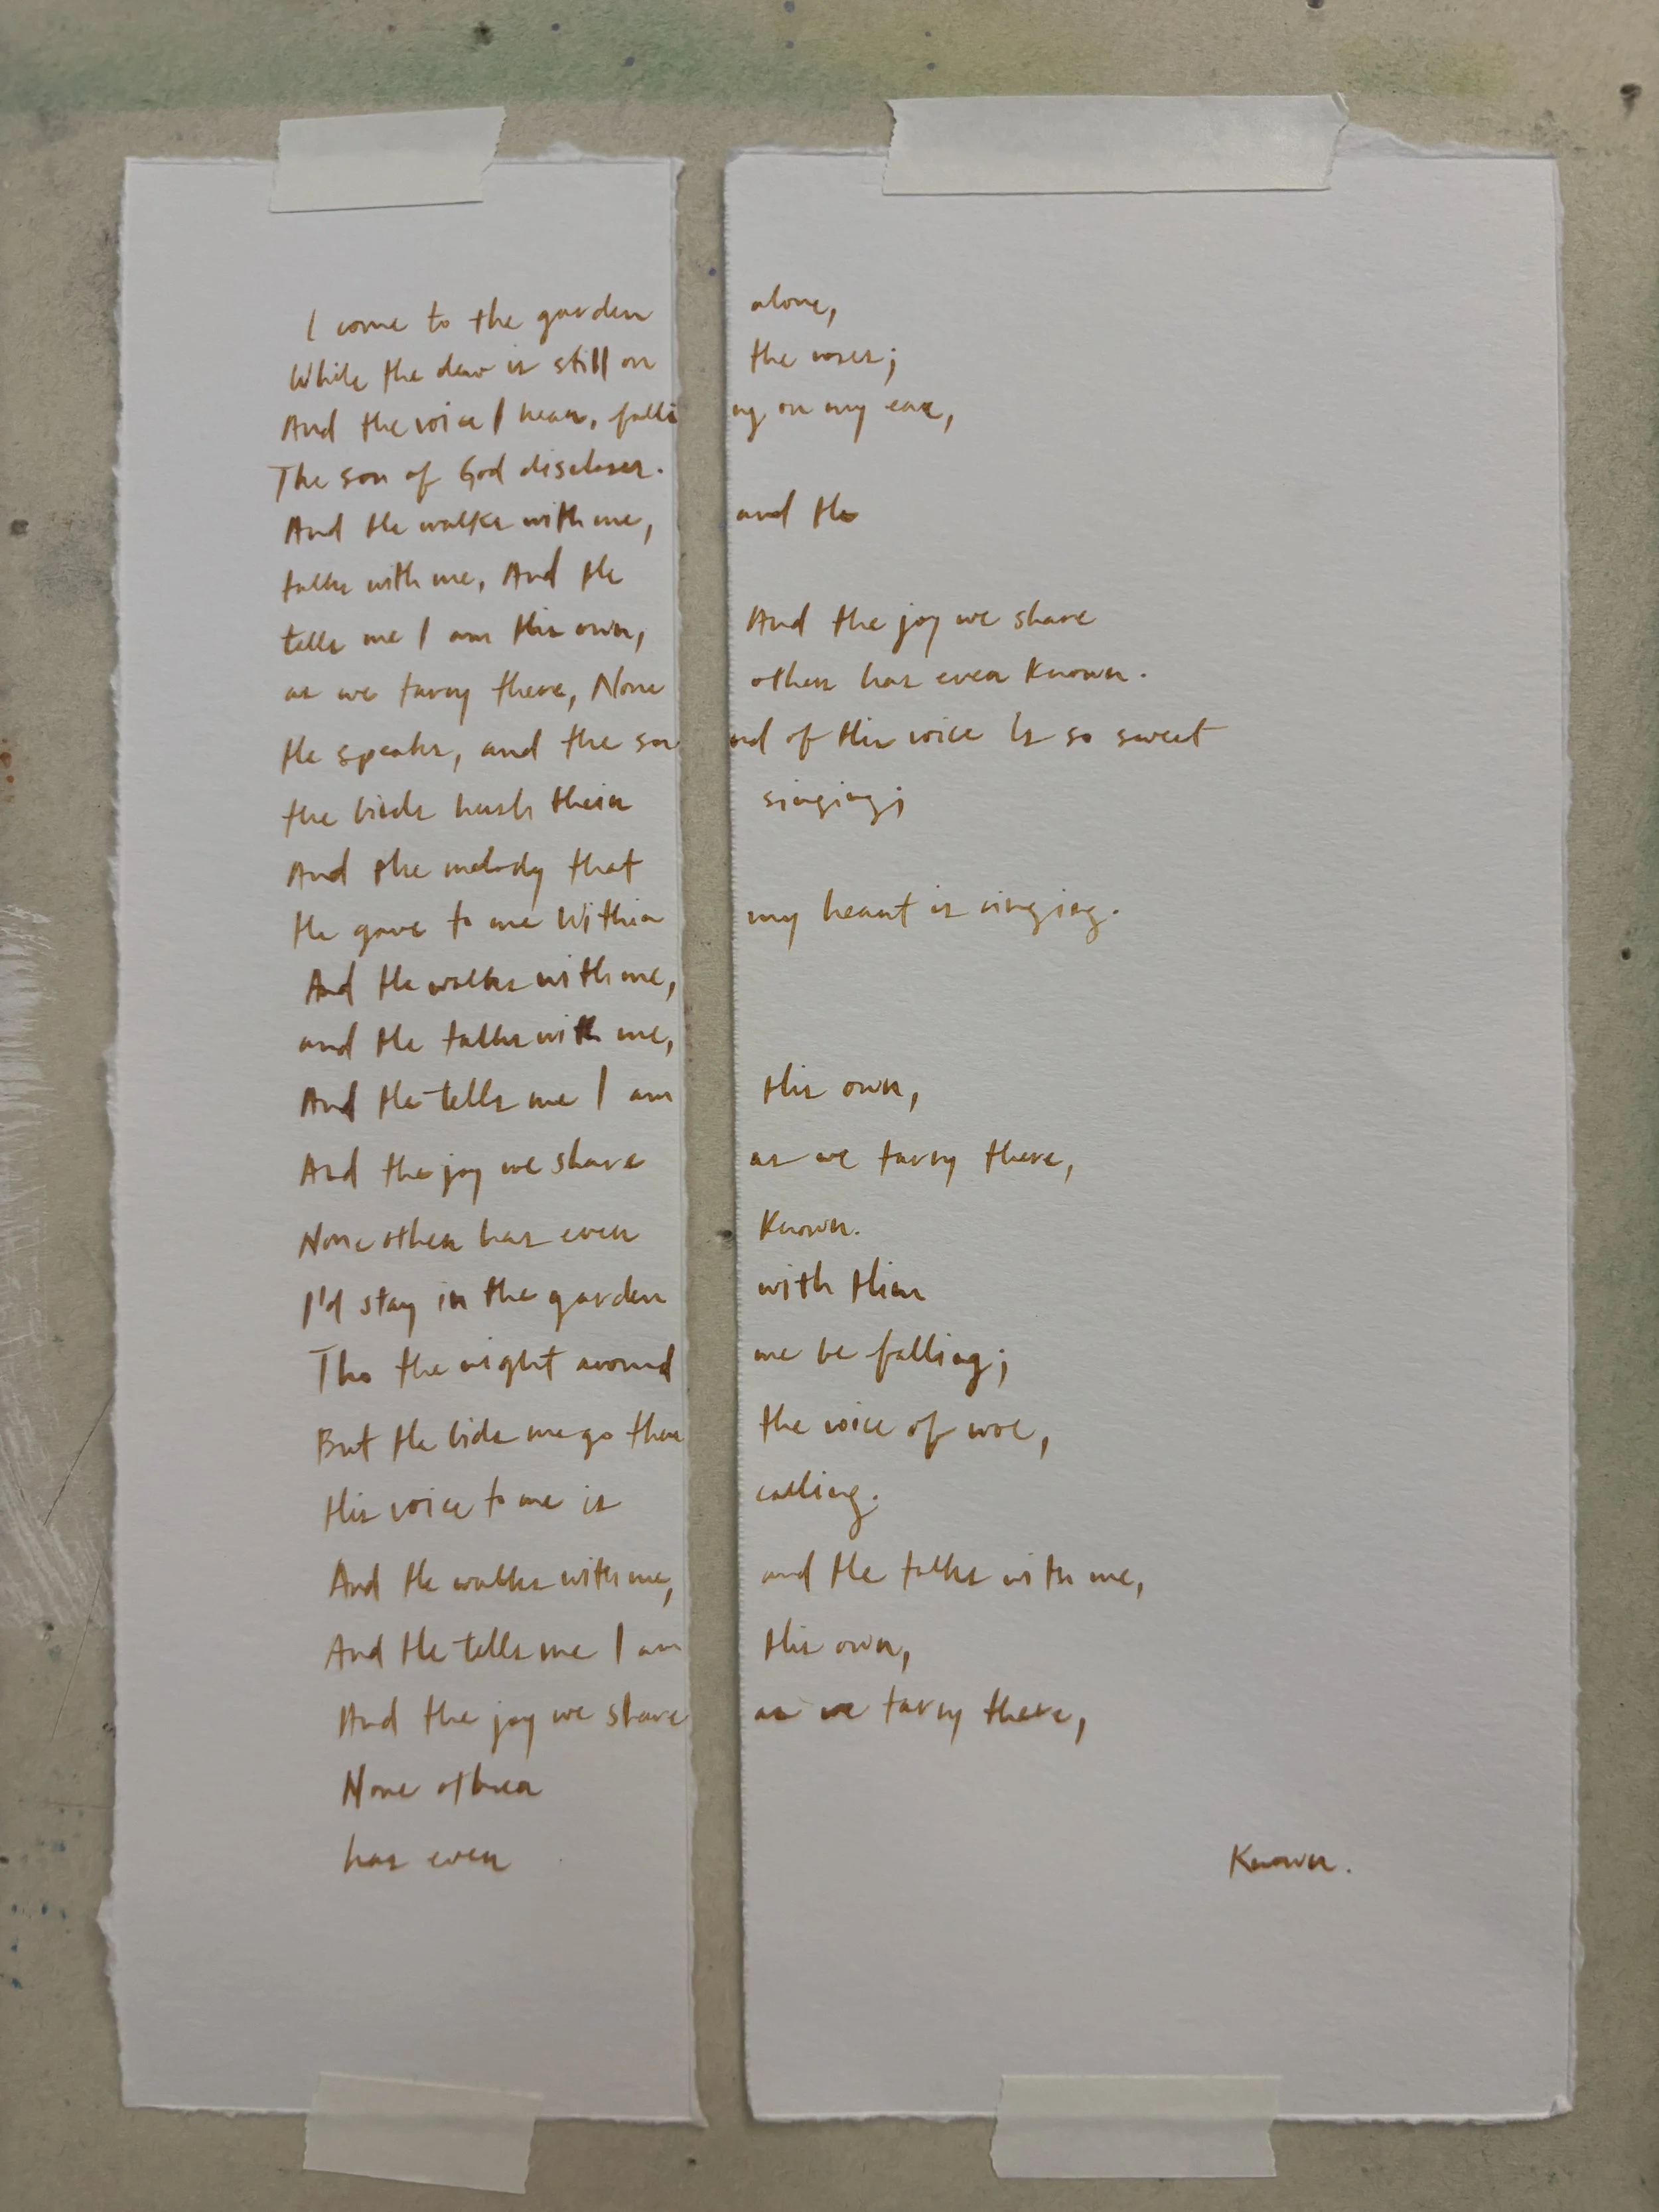 I come to the garden alone,
While the dew is still on the roses;
And the voice I hear, falling on my ear,
The son of God discloses.
And He walks with me, and He
talks with me, And He
tells me I am His own, And the joy we share
as we tarry there, None other has ever known.
He speaks, and the sound of His voice Is so sweet
the birds hush their singing;
And the melody that
He gave to me Within my heart is ringing.
And He walks with me,
and He talks with me,
And He tells me I am His own,
And the joy we share as we tarry there,
None other has ever known.
I'd stay in the garden with Him
Tho the night around me be falling;
But He bids me go thru the voice of woe,
His voice to me is calling.
And He walks with me, and He talks with me,
And He tells me I am His own,
And the joy we share as we tarry there,
None other
has ever known.